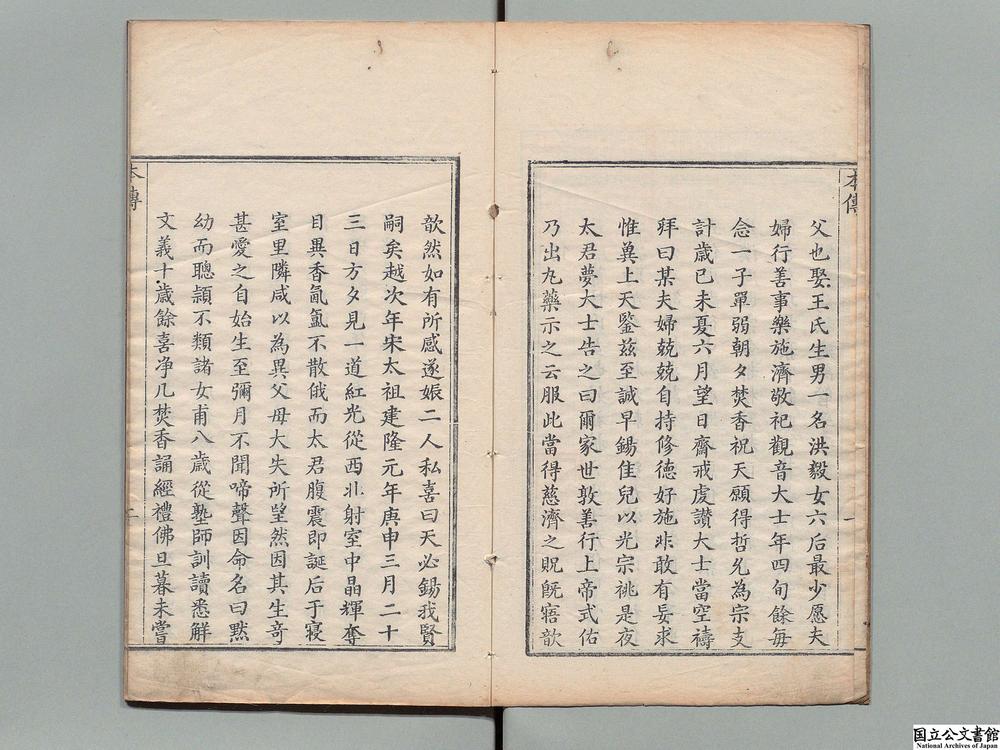 本傳
一
父也娶王氏生男一名洪毅女六后最少愿夫
婦行善事樂施濟敬祀觀音大士年四旬餘每
念一子單弱朝夕焚香祝天願得哲兒為宗支
計歲己未夏六月望日齋戒虔讃大士當空禱
拜曰某夫婦兢兢自持修德好施非敢有妄求
惟兾上天鑒茲至誠早錫佳兒以光宗祧是夜
太君夢大士告之曰爾家世敦善行上帝式佑
乃出九藥示之云服此當得慈濟之貺旣寤歆
歆然如有所感遂娠二人私喜曰天必錫我賢
嗣矣越次年宋太祖建隆元年庚申三月二十
三日方夕見一道紅光從西北射室中晶輝奪
目異香氤氳不散俄而太君腹震即誕后于寢
室里隣咸以為異父母大失所望然因其生奇
甚愛之自始生至彌月不聞啼聲因命名曰默
幼而聰頴不類諸女甫八歲從塾師訓讀悉解
文義十歲餘喜净几焚香誦經禮佛旦暮未嘗
本傳
二
国立公文書館
National Archives of Japan